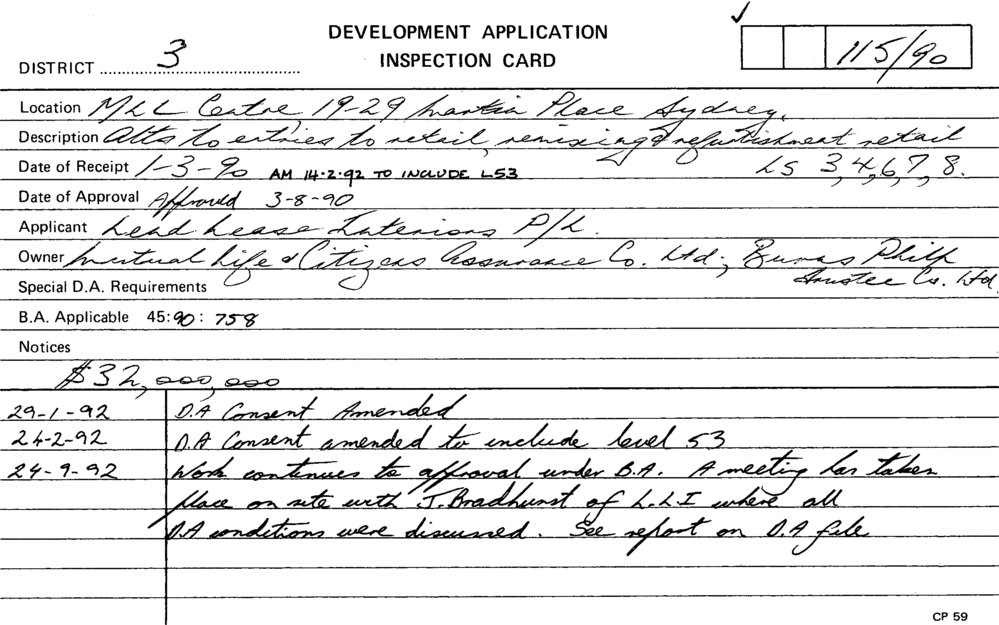 DEVELOPMENT APPLICATION
INSPECTION CARD
DISTRICT 3
115/90
Location MLC Centre, 19-29 Martin Place Sydney.
Description Alts to entries to retail, remixing & refurbishment retail
Date of Receipt 1-3-90 AM 14.2.92 TO INCLUDE L53 LS 3,4,6,7,8.
Date of Approval Approved 3-8-90
Applicant Lend Lease Interiors P/L.
Owner Mutual Life & Citizens Assurance Co. Ltd; Burns Philp
Trustee Co. Ltd.
Special D.A. Requirements
B.A. Applicable 45:90:758
Notices
$32,000,000
29-1-92 D.A Consent Amended
24-2-92 D.A Consent amended to include level 53
24-9-92 Work continues to approval under B.A. A meeting has taken
place on site with J. Bradhurst of L.L.I where all
D.A conditions were discussed. See report on D.A file
CP 59